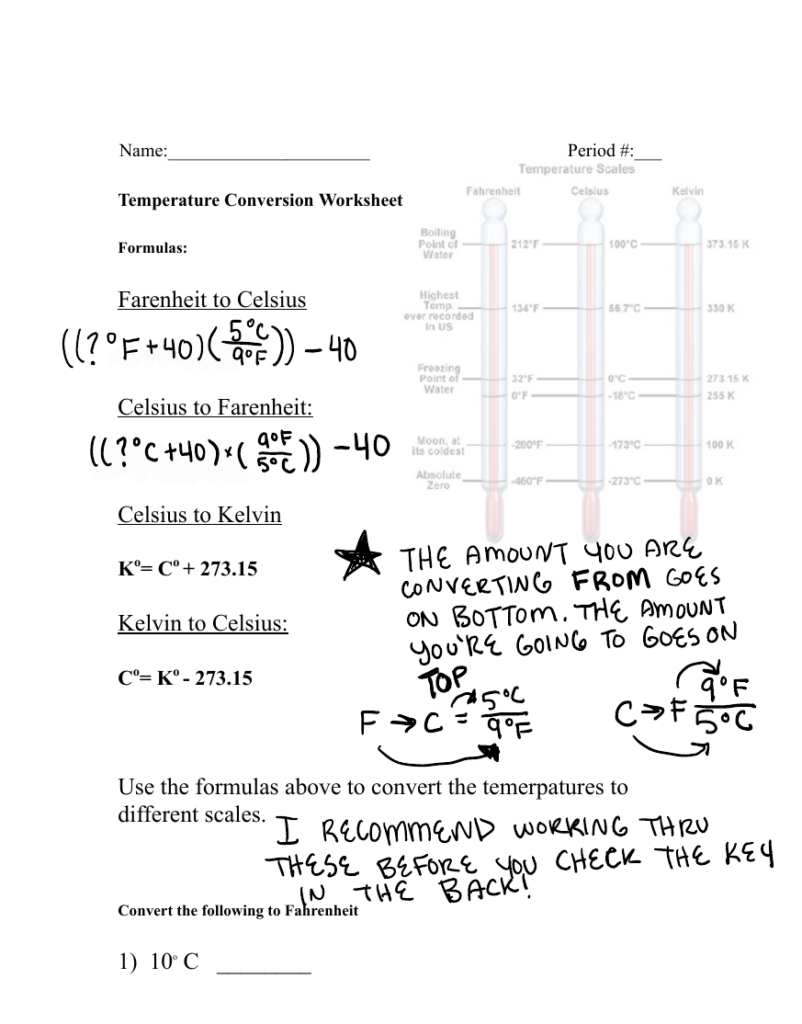 Name:_______________________ Period #:___
Temperature Scales
Temperature Conversion Worksheet
Fahrenheit Celsius Kelvin
Formulas:
Boiling
Point of
Water
212°F 100°C 373.15 K
Farenheit to Celsius
Highest
Temp.
ever recorded
in US
134°F 56.7°C 330 K
((?°F+40)(5°C/9°F)) - 40
Freezing
Point of
Water
32°F 0°C 273.15 K
0°F -18°C 255 K
Celsius to Farenheit:
((?°C+40)*(9°F/5°C)) -40
Moon, at
its coldest
-280°F -173°C 100 K
Absolute
Zero
-460°F -273°C 0 K
Celsius to Kelvin
K°= C° + 273.15
Kelvin to Celsius:
C°= K° - 273.15
★ THE AMOUNT YOU ARE
CONVERTING FROM GOES
ON BOTTOM. THE AMOUNT
YOU'RE GOING TO GOES ON
TOP
F → C = 5°C/9°F
C → F 9°F/5°C
Use the formulas above to convert the temerpatures to
different scales.
I RECOMMEND WORKING THRU
THESE BEFORE YOU CHECK THE KEY
IN THE BACK!
Convert the following to Fahrenheit
1) 10° C ________